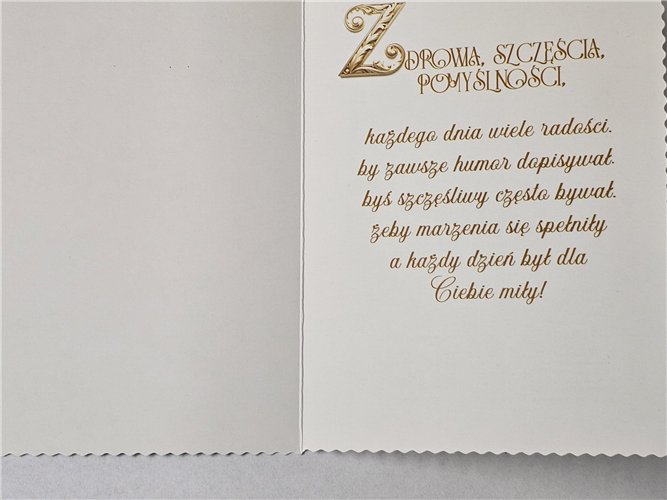 ZDROWIA, SZCZĘŚCIA,
POMYŚLNOŚCI,
każdego dnia wiele radości.
by zawsze humor dopisywał.
byś szczęśliwy często bywał.
żeby marzenia się spełniły
a każdy dzień był dla
Ciebie miły!